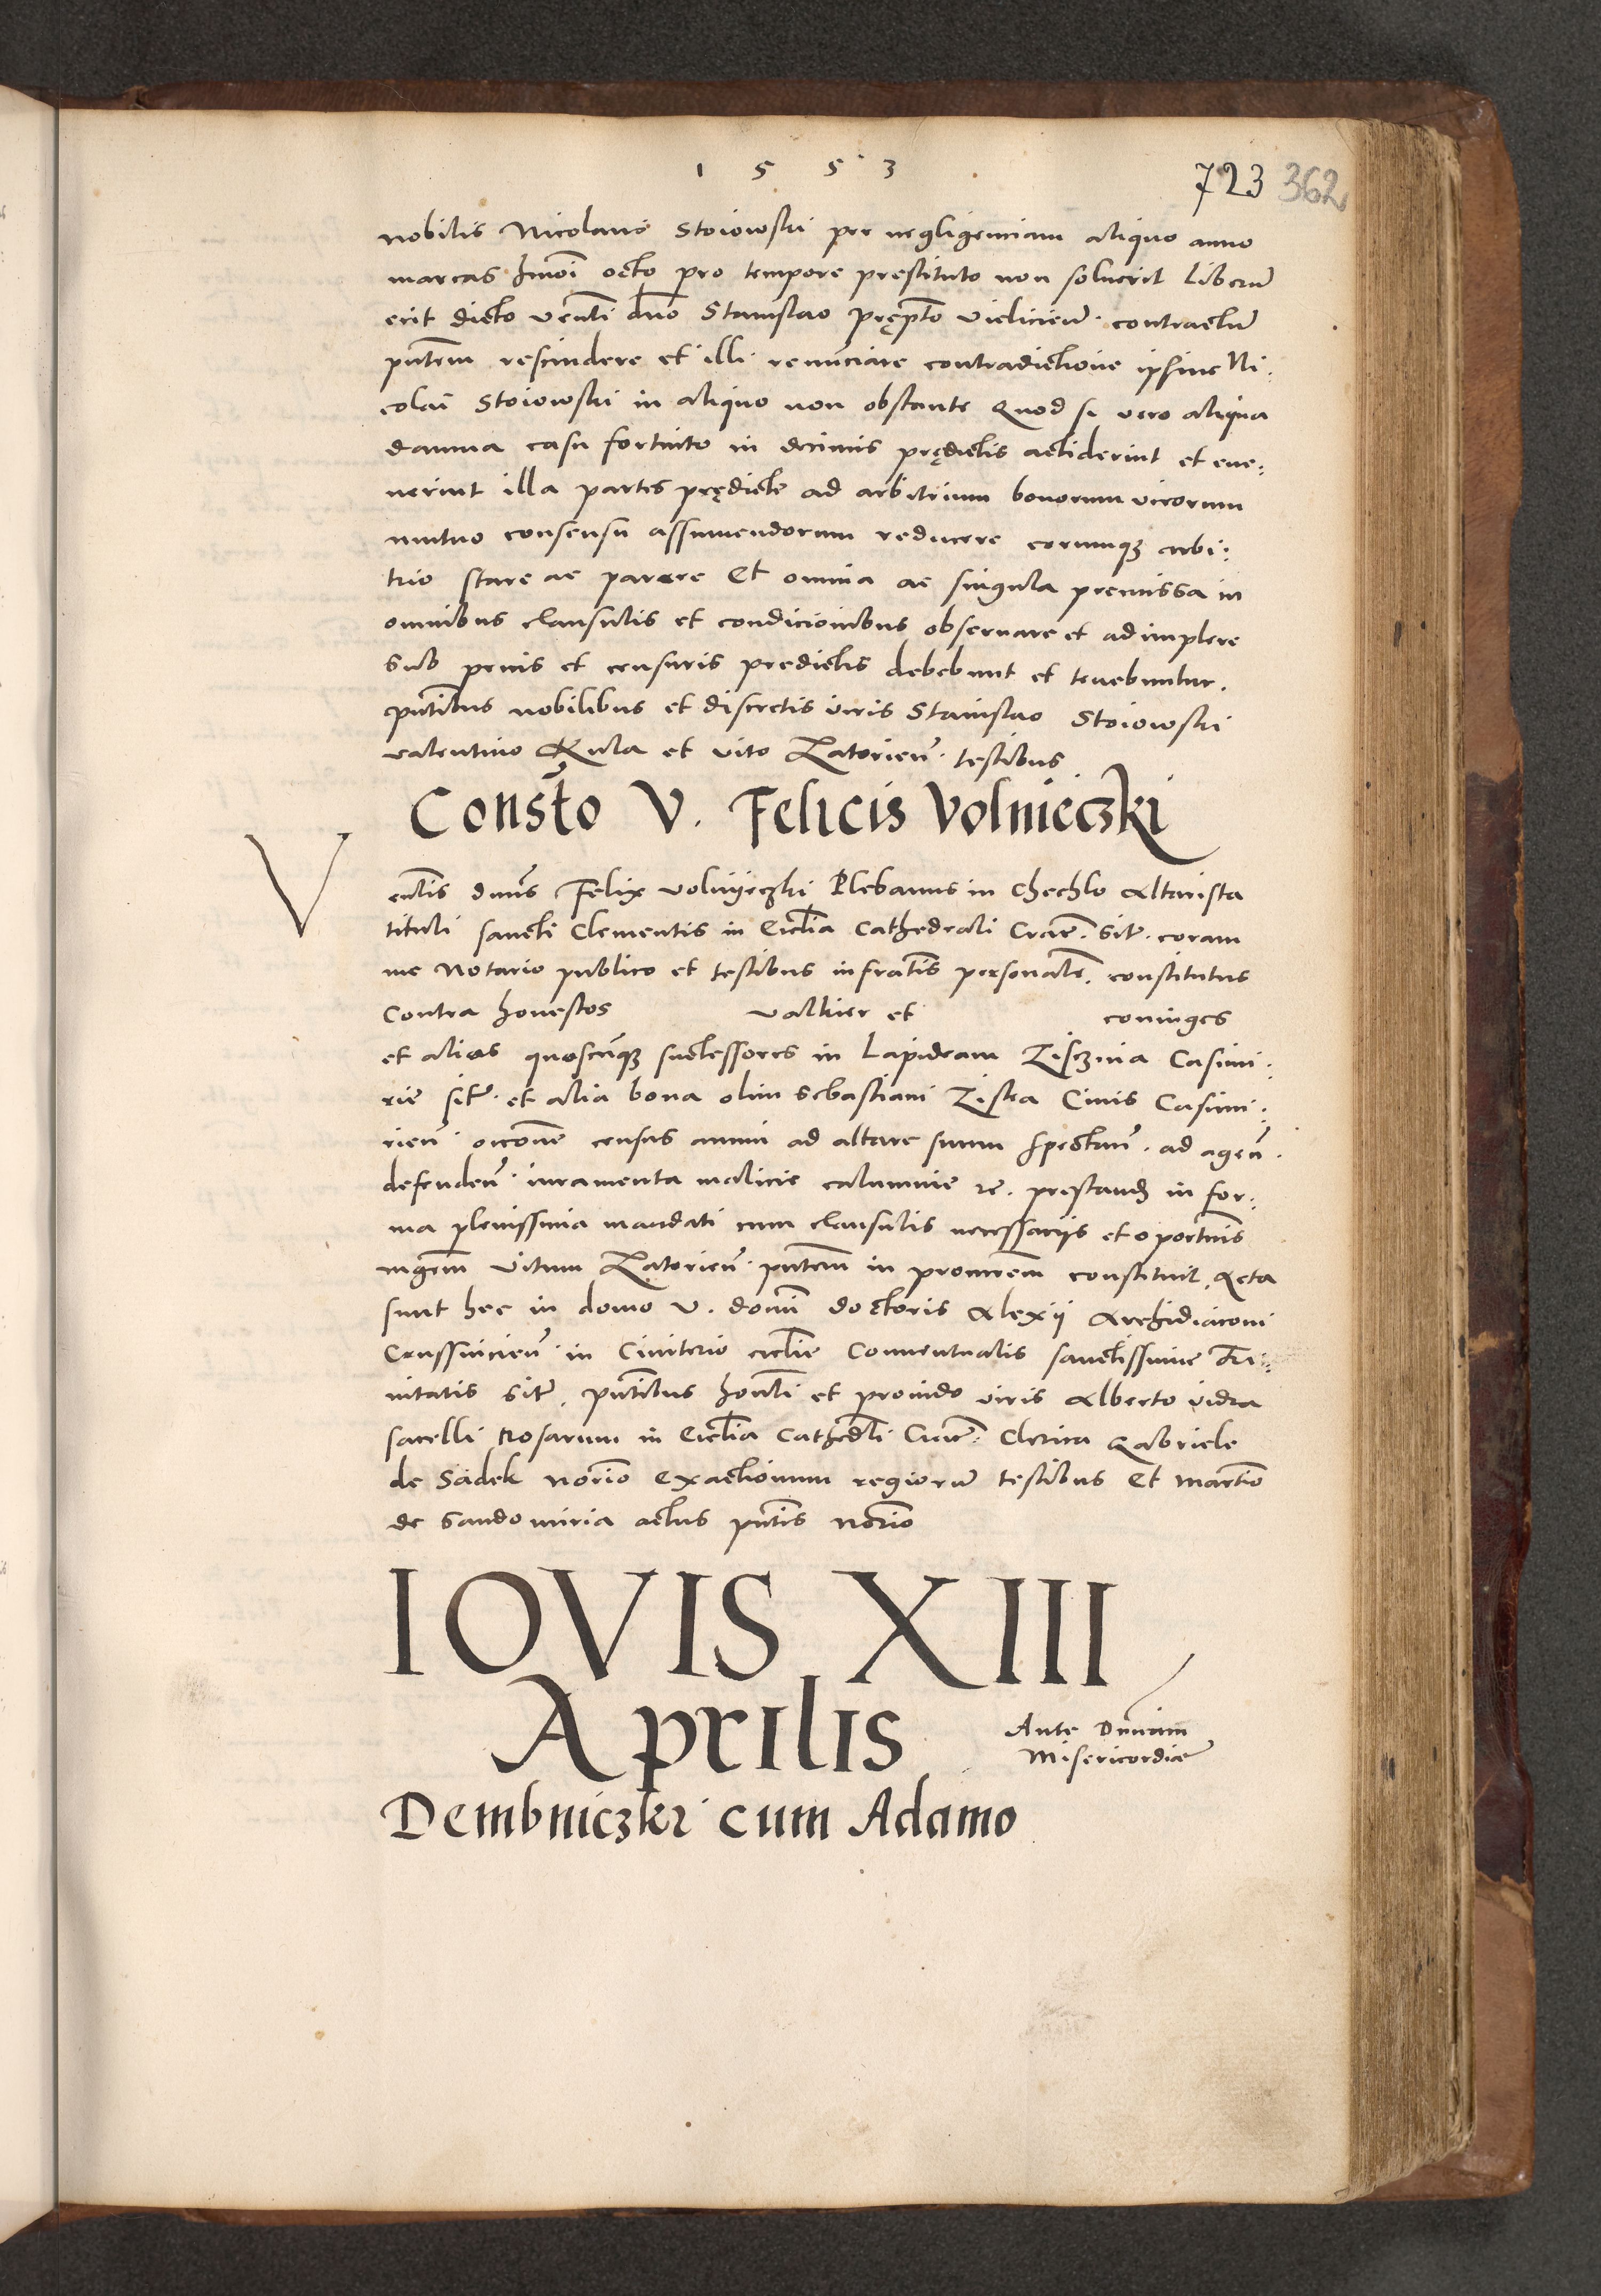 1 5 5 3
723 362
nobilis Nicolaus Stoiowski per negligenciam aliquo anno
marcas hmoi octo pro tempore prestituto non soluerit liberu
erit dicto venti dno Stanislao pręp̄to vielicien̄. contractu
pntem rescindere et illi renunciare contradictione ipsius Ni:
colai Stoiowski in aliquo non obstante Quod si vero aliqua
damna casu fortuito in decimis prędictis acciderint et eue:
nerint illa partes prędicte ad arbitrium bonorum virorum
mutuo consensu assumendorum reducere eorumqꝫ arbi:
trio stare ac parere Et omnia ac singula premissa in
omnibus clausulis et condicionibus obseruare et adimplere
sub penis et censuris predictis debebunt et tenebuntur.
pntibus nobilibus et discretis viris Stanislao Stoiowski
valentino Kula et vito Latorien̄. testibus
Consto V. Felicis Volnieczki
Venlis dnus Felix volnyeczki Plebanus in Chechlo Altarista
tituli sancti Clementis in Ecclia Cathedrali Crac. sit. coram
me Notario publico et testibus infratis personalr. constitutus
Contra honestos valkier et coniuges
et alios quoscuqꝫ successores in Lapideam Zisczina Casimi:
rie sit. et alia bona olim Sebastiani Ziska Ciuis Casimi:
rien̄. occone census annui ad altare suum spectan̄. ad agen̄.
defenden̄. iuramenta malicie calumnie rc. prestand in for:
ma plenissima mandati cum clausulis necessariis et oportunis
mgrm vitum Latorien̄. pntem in procurem constituit. Acta
sunt hec in domo v. domi doctoris Alexii Archidiaconi
Crussuicien̄. in Cimiterio ecclie Conuentualis sanctissime Tri:
nitatis sit. pntibus honli et prouido viris Alberto vidra
sacelli Rosarum in Ecclia Cathedli Crac. Clerico Gabriele
de Sadek norio Exactionum regioru testibus Et martio
de Sandomiria actus pntis norio
IOVIS XIII
Aprilis
Ante Dnicam
Misericordiae
Dembniczki cum Adamo